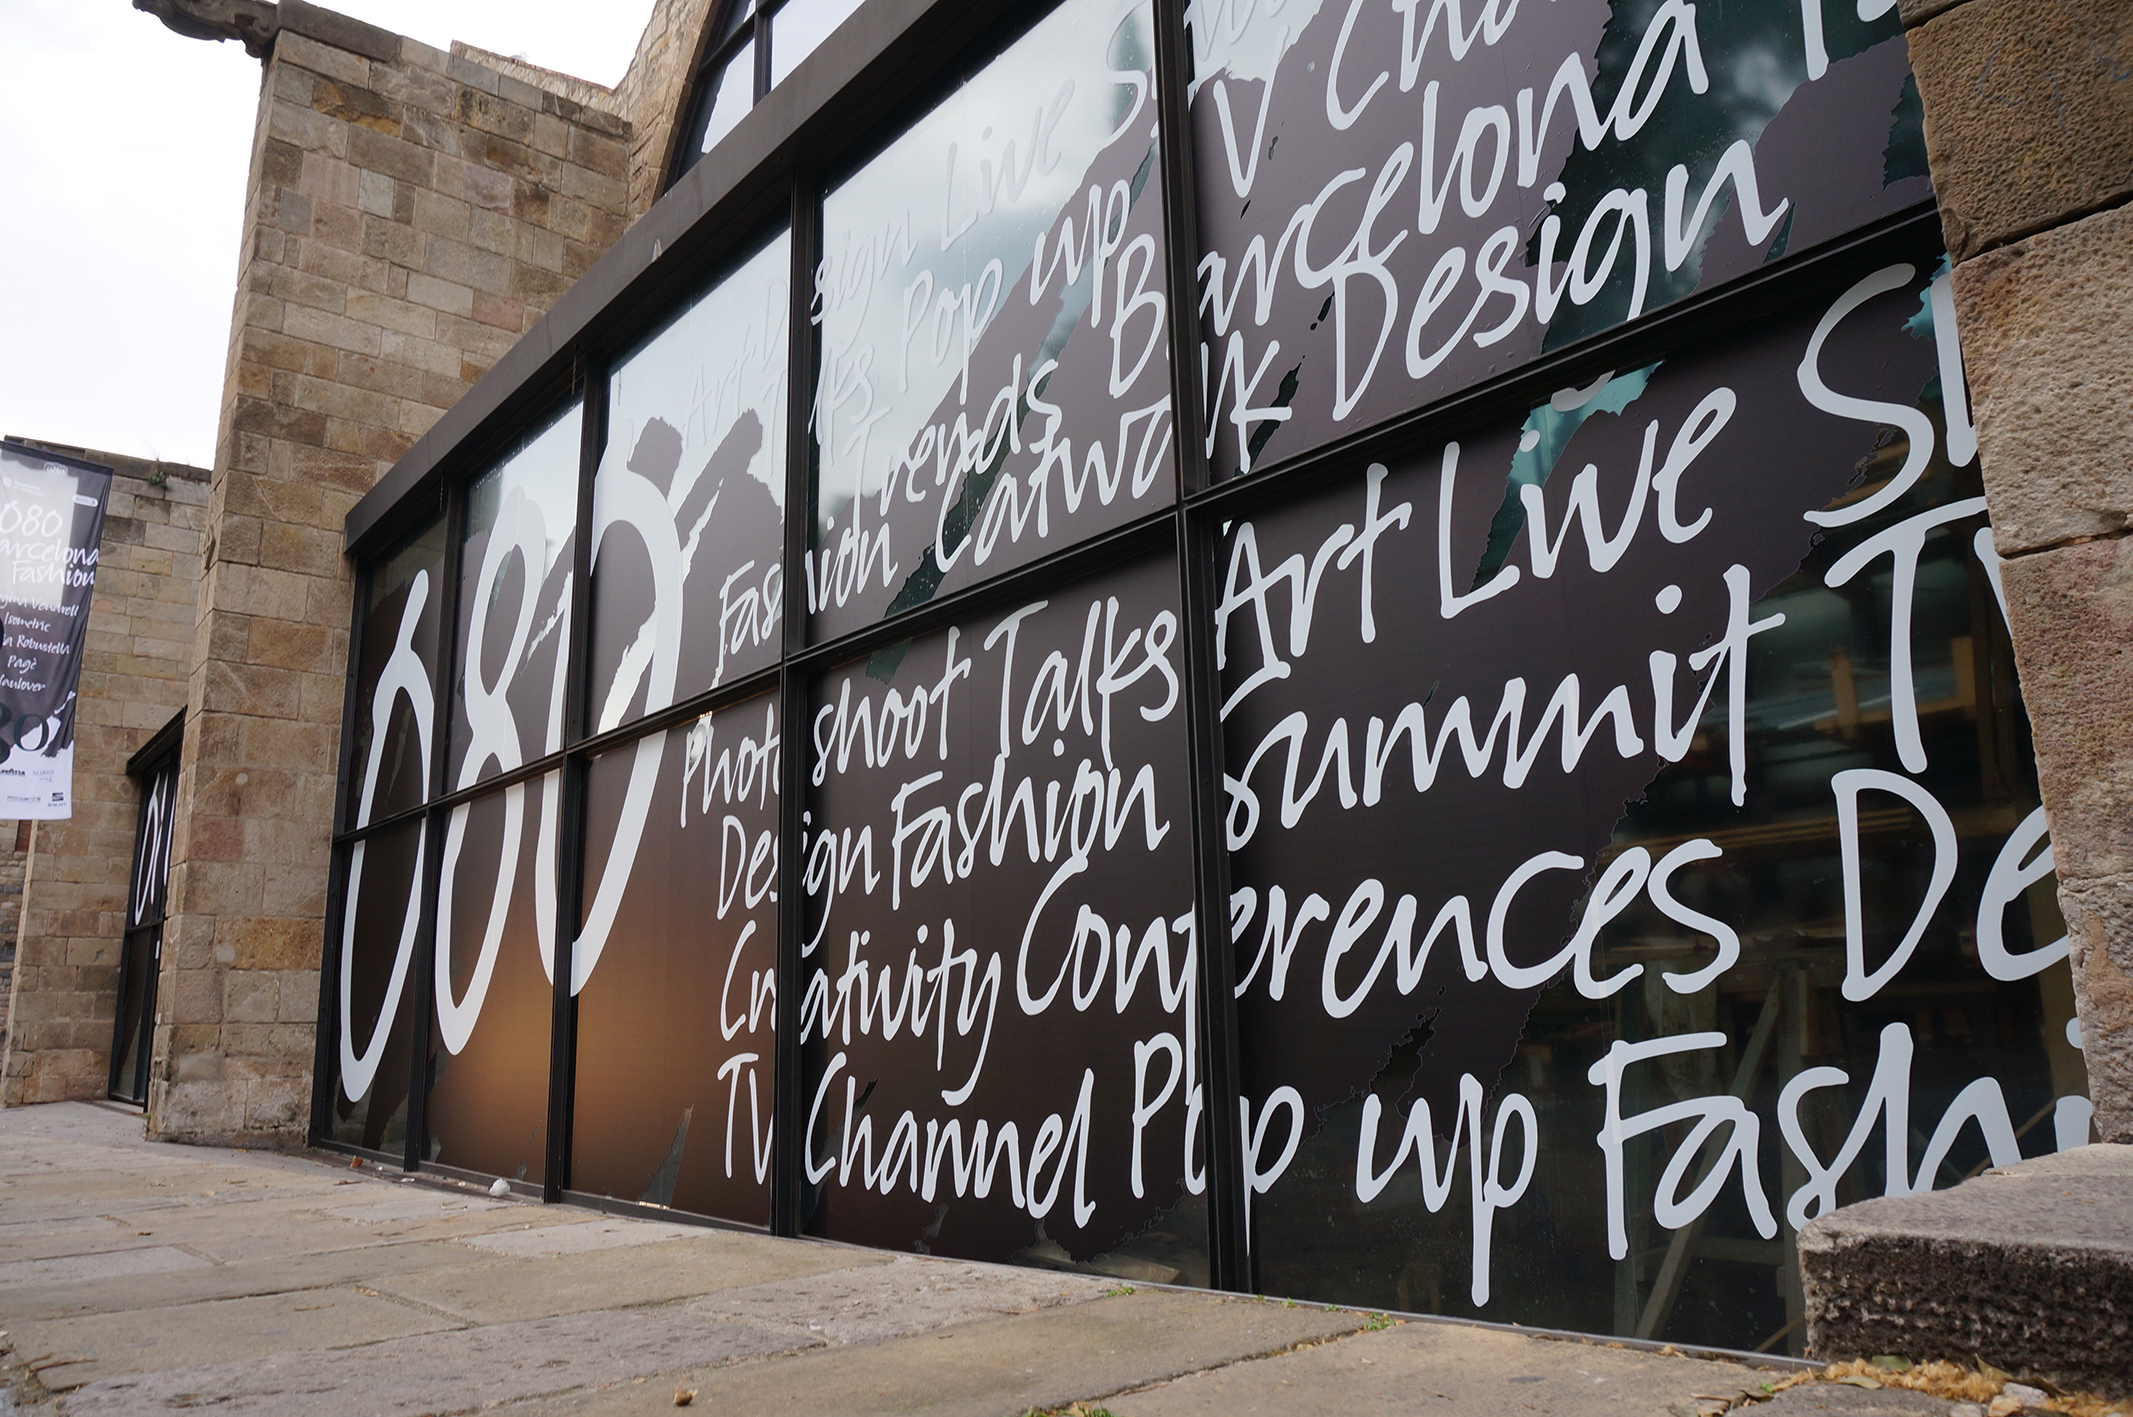 080
Barcelona
Fashion
Isometric
Pagè
080
Art Design Live S
TV Cha
Talks Pop up Barcelona
Trends Catwalk Design
Fashion
Photo shoot Talks Art Live S
Design Fashion Summit TV
Creativity Conferences De
TV Channel Pop up Fashi